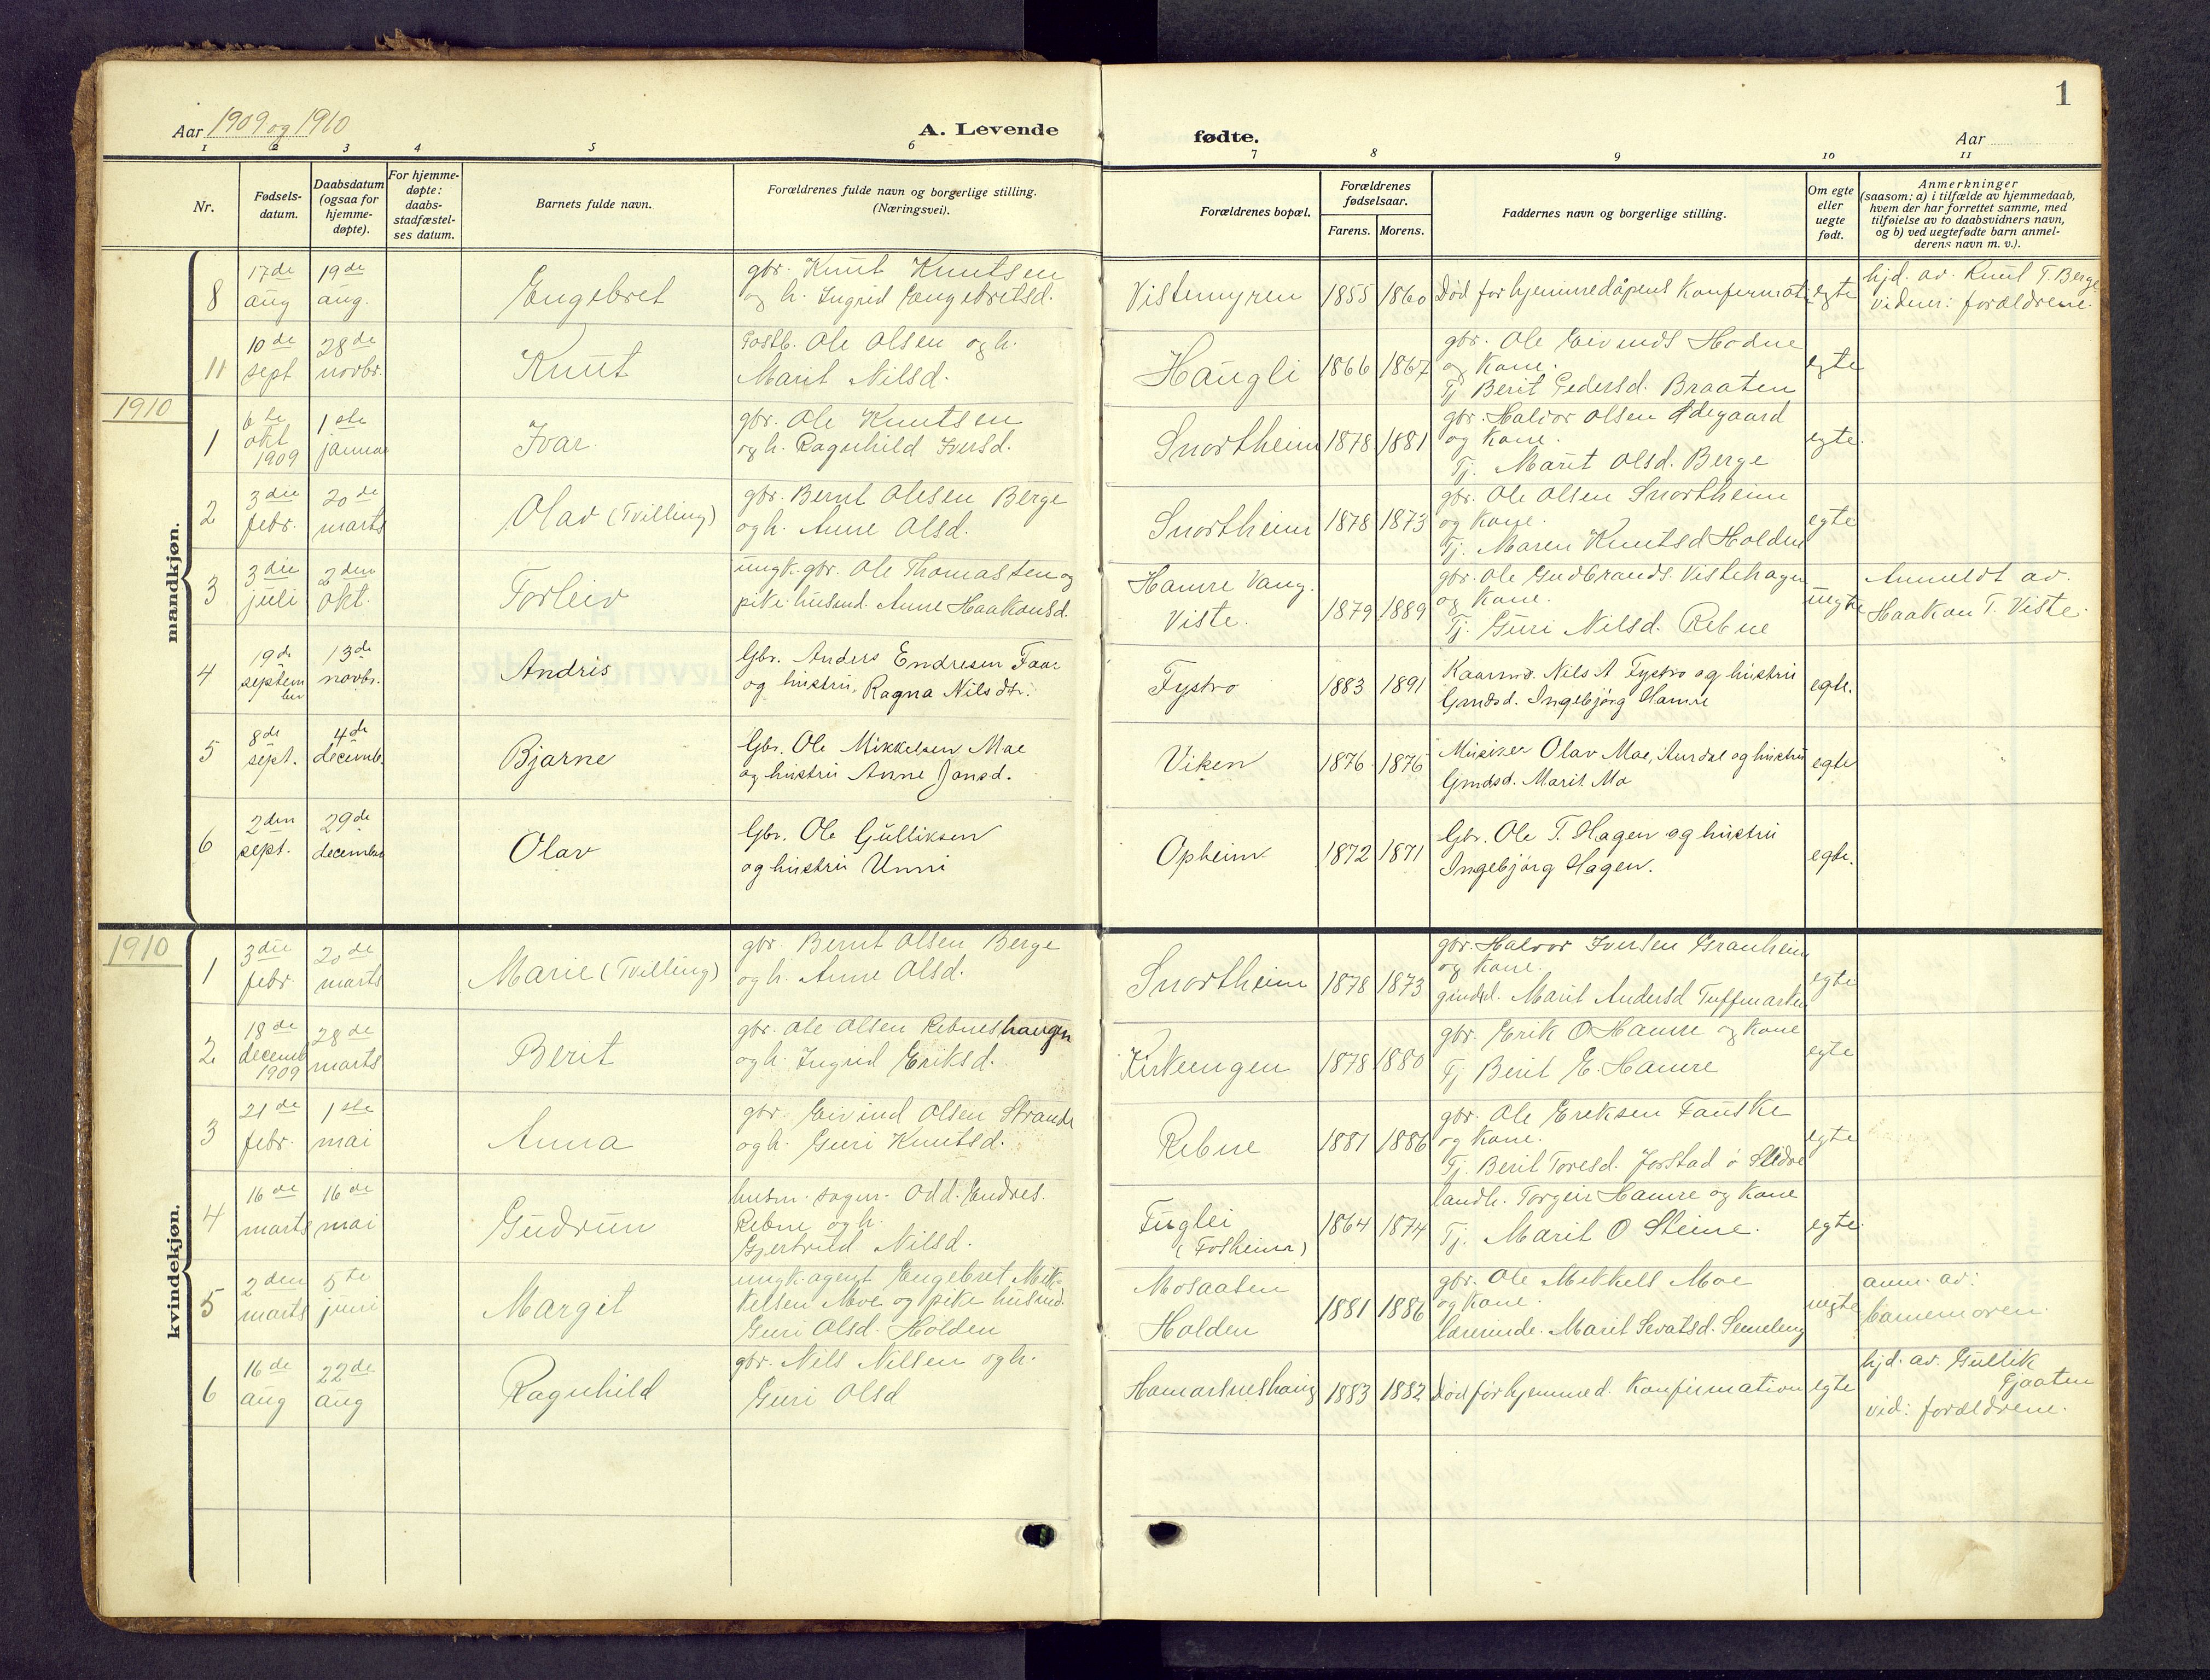 1
Aar 1909 og 1910
A. Levende
fødte.
Aar
1 2 3 4 5 6 7 8 9 10 11
Nr.
Fødsels-
datum.
Daabsdatum
(ogsaa for
hjemme-
døpte).
For hjemme-
døpte:
daabs-
stadfæstel-
ses datum.
Barnets fulde navn.
Forældrenes fulde navn og borgerlige stilling.
(Næringsvei).
Forældrenes bopæl.
Forældrenes
fødselsaar.
Farens. Morens.
Faddernes navn og borgerlige stilling.
Om egte
eller
uegte
født.
Anmerkninger
(saasom: a) i tilfælde av hjemmedaab,
hvem der har forrettet samme, med
tilføielse av to daabsvidners navn,
og b) ved uegtefødte barn anmel-
derens navn m. v.).
mandkjøn.
8
17de
aug
19de
aug.
Engebret
gbr. Knut Knutsen
og h. Ingrid Engebretsd.
Vistemyren
1855 1860
Død før hjemmedåpens Konfirmat.
egte
hjd. av Knut T. Berge
vidner: forældrene.
11
10de
sept
28de
novbr.
Knut
Postb. Ole Olsen og h.
Marit Nilsd.
Haugli
1866 1867
gbr. Ole Eivinds Hodne
og Kone.
Tj Berit Pedersd. Braaten
egte
1910
1
6te
okt
1909
1ste
januar
Ivar
gbr. Ole Knutsen
og h. Ragnhild Iversd.
Snortheim
1878 1881
gbr. Halvor Olsen Ødegaard
og Kone.
Tj. Marit Olsd. Berge
egte.
2
3die
febr.
20de
marts
Olav (Tvilling)
gbr. Bernt Olesen Berge
og h. Anne Olsd.
Snortheim
1878 1873
gbr. Ole Olsen Snortheim
og Kone.
Tj. Maren Knutsd Holden
egte
3
3die
juli
2den
okt.
Torleiv
ungk. gbr. Ole Thomassen og
pike husmd. Anne Haakonsd.
Hamre Vang.
Viste.
1879 1889
gbr. Ole Gudbrands. Vistehagen
og Kone.
Tj. Guri Nilsd. Rebne
uegte
Anmeldt av.
Haakon T. Viste.
4
19de
septem
ber
13de
novbr.
Andris
Gbr. Anders Endresen Faar
og hustru, Ragna Nilsdtr.
Fystro
1883 1891
Kaarmd. Nils A Fystro og hustru
Gmdsd. Ingebjørg Hamre
egte.
5
8de
sept.
4de
decemb.
Bjarne
Gbr. Ole Mikkelsen Moe
og hustru Anne Jonsd.
Viken
1876 1876
Musiker Olav Moe, Aurdal og hustru
Gmdsd. Marit Mo
egte
6
2den
sept.
29de
december
Olav
Gbr. Ole Gulliksen
og hustru Unni
Opheim
1872 1871
Gbr. Ole T. Hagen og hustru
Ingebjørg Hagen.
egte.
1910
kvindekjøn.
1
3die
febr.
20de
marts
Marie (Tvilling)
gbr. Bernt Olsen Berge
og h. Anne Olsd.
Snortheim
1878 1873
gbr. Halvor Iversen Granheim
og Kone.
gmdsd. Marit Andersd Tuffmarken
egte
2
18de
decemb
1909
28de
marts
Berit
gbr. Ole Olsen Rebneshaugen
og h. Ingrid Eriksd.
Kirkeengen
1878 1880
gbr. Erik O Hamre og Kone
Tj Berit E. Hamre
egte
3
21de
febr.
1ste
mai
Anna
gbr. Eivind Olsen Strande
og h. Guri Knutsd.
Rebne
1881 1886
gbr. Ole Ereksen Fauske
og Kone.
Tj. Berit Toresd. Jorstad ø Slidre
egte
4
16de
marts
16de
mai
Gudrun
husm. sogn. Odd. Endres.
Rebne og h.
Gjertrud Nilsd.
Fuglei
(Fosheim)
1864 1874
landh. Torgeir Hamre og Kone
Tj. Marit O Steine.
egte.
5
2den
marts
5te
juni
Margit
ungk. agent Engebret Mik-
kelsen Moe og pike husmd.
Guri Olsd. Holden
Mosaaten
Holden
1881 1886
gbr. Ole Mikkels Moe
og Kone.
lærerinde. Marit Sevatsd. Semeleng
uegte
anm. av:
barnemoren.
6
16de
aug
22de
aug
Ragnhild
gbr. Nils Nilsen og h.
Guri Olsd
1883 1882
Død før hjemmed. Konfirmation
egte
hjd. av. Gullik
Gjaaten
vid: forældrene.